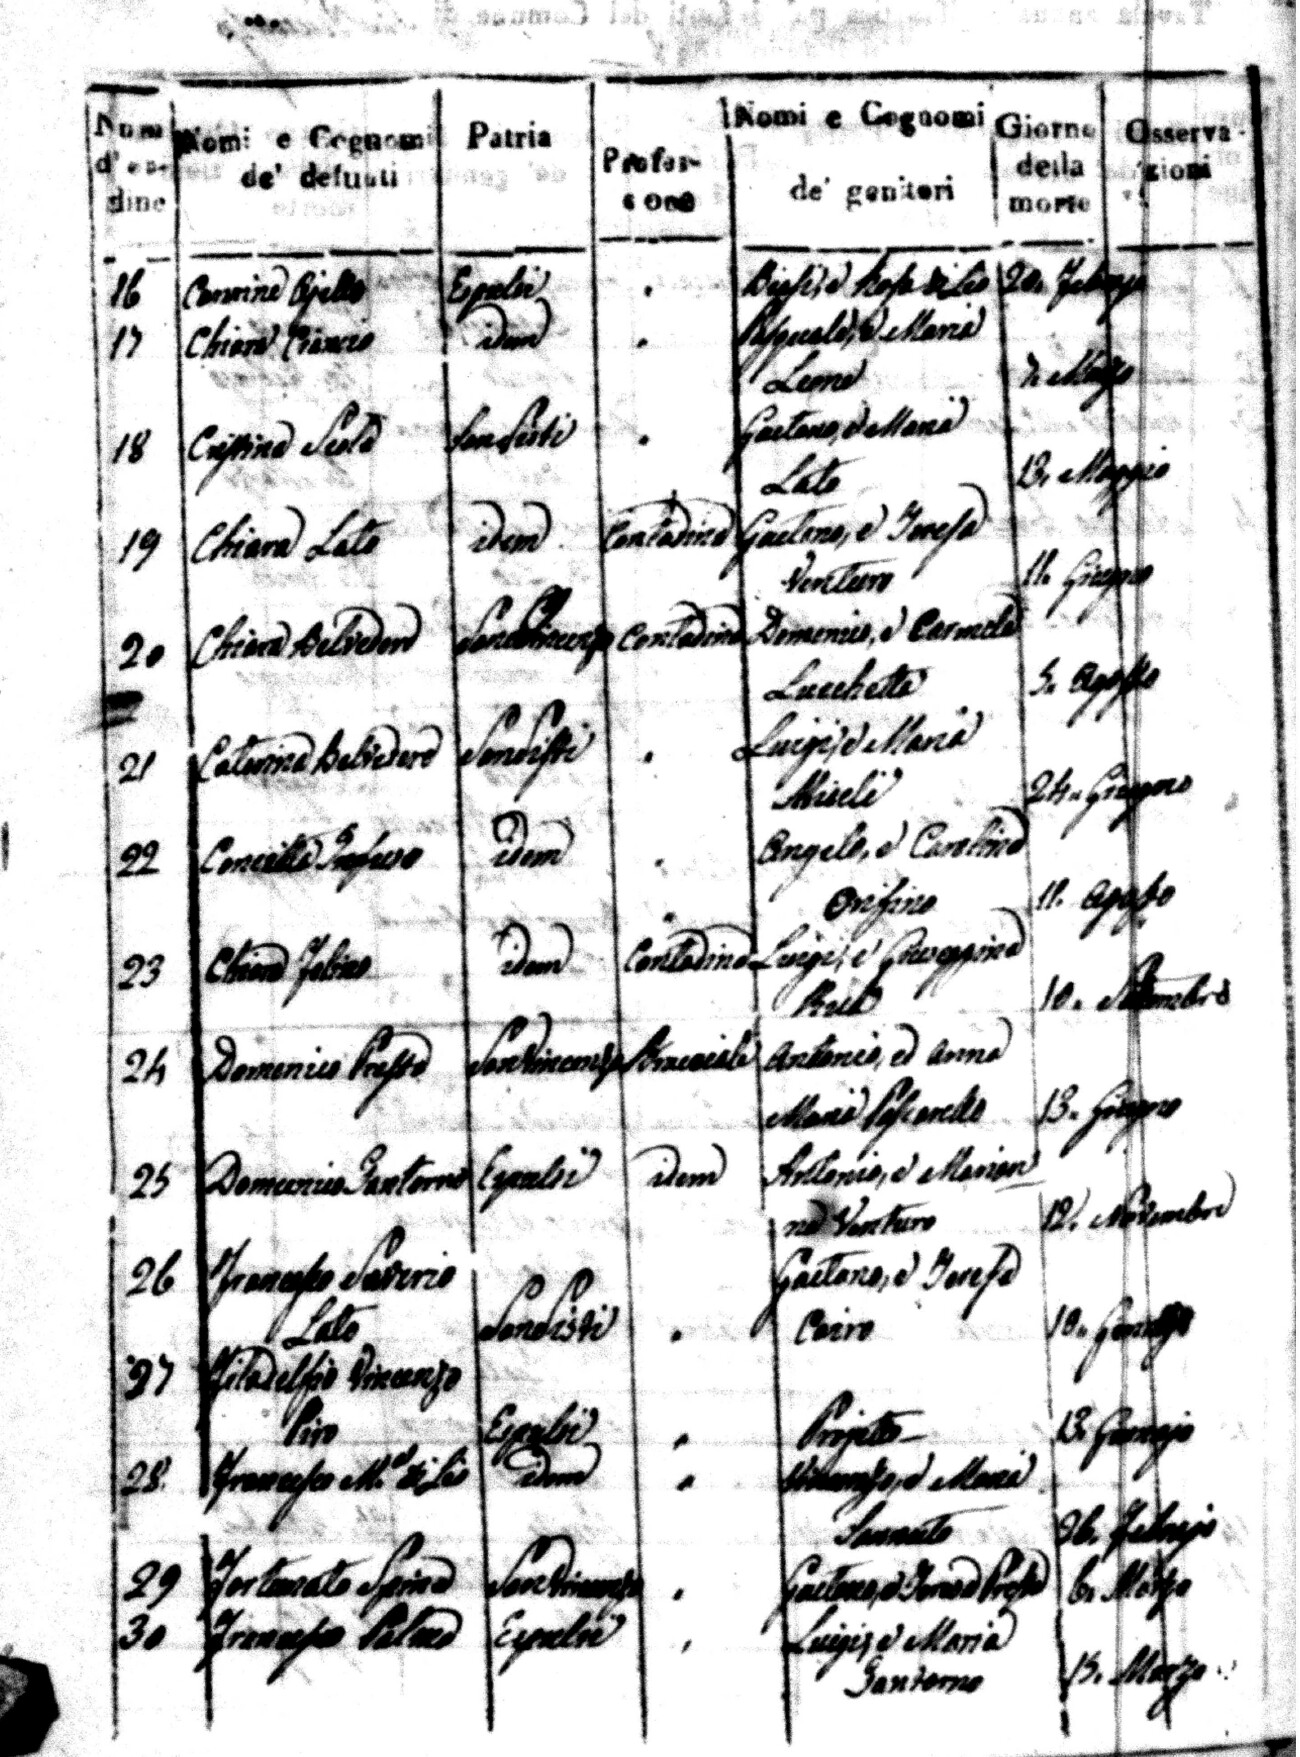 Num d'or- dine
Nomi e Cognomi de' defunti
Patria
Profes- sione
Nomi e Cognomi de' genitori
Giorno della morte
Osserva- zioni
16 Carmine Ajello Espulsi " e Rosa di Lio 20. Febrajo
17 Chiara Ciancio idem " Pasquale, e Maria
Leone 7. Marzo
18 Cristina Scola San Sisti " Gaetano, e Maria
Lato 13. Maggio
19 Chiara Lato idem Contadina Gaetano, e Teresa
Venturo 11. Giugno
20 Chiara Belvedere San Vincenzo Contadina Domenico, e Carmela
Lucchetta 5. Agosto
21 Caterina Belvedere San Sisti " Luigi, e Maria
Miceli 24. Giugno
22 Concetta idem " Angelo, e Carolina
Orifino 11. Agosto
23 Chiara idem Contadina Luigi, e Giuseppina
10. Settembre
24 Domenico Presta San Vincenzo Bracciale Antonio, ed Anna
Maria Pescarello 13. Giugno
25 Domenico Santorno Espulsi idem Antonio, e Marian
na Venturo 12. Novembre
26 Francesco Saverio Gaetano, e Teresa
Lato San Sisti " Cairo 10. Gennajo
27 Filadelfio Vincenzo
Piro Espulsi " Projetto 13. Gennajo
28. Francesco M.a di Lio idem " Vincenzo, e Maria
26. Febrajo
29 Fortunato Spina San Vincenzo " Gaetano, e Teresa Presta 6. Marzo
30 Francesco Espulsi " Luigi, e Maria
Santorno 15. Marzo